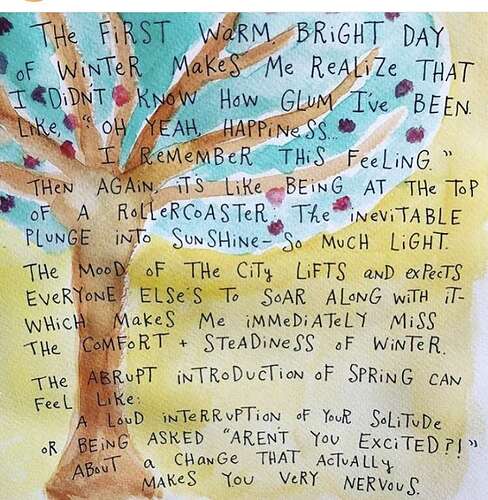 THE FIRST WARM, BRIGHT DAY
OF WINTER MAKES ME REALIZE THAT
I DIDN'T KNOW HOW GLUM I'VE BEEN.
LIKE, "OH YEAH, HAPPINESS...
I REMEMBER THIS FEELING."
THEN AGAIN, IT'S LIKE BEING AT THE TOP
OF A ROLLERCOASTER: THE INEVITABLE
PLUNGE INTO SUNSHINE - SO MUCH LIGHT.
THE MOOD OF THE CITY LIFTS AND EXPECTS
EVERYONE ELSE'S TO SOAR ALONG WITH IT-
WHICH MAKES ME IMMEDIATELY MISS
THE COMFORT + STEADINESS OF WINTER.
THE ABRUPT INTRODUCTION OF SPRING CAN
FEEL LIKE:
A LOUD INTERRUPTION OF YOUR SOLITUDE
OR BEING ASKED "AREN'T YOU EXCITED?!"
ABOUT A CHANGE THAT ACTUALLY
MAKES YOU VERY NERVOUS.